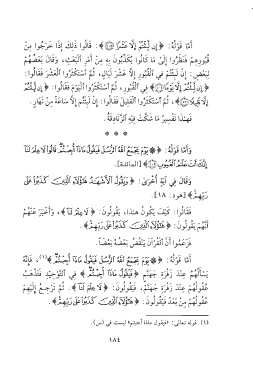 أمَّا قَوْلُهُ: ﴿إِن لَّبِثْتُمْ إِلَّا عَشْرًا﴾: قَالُوا ذَلِكَ إِذَا خَرَجُوا مِنْ
قُبُورِهِمْ فَنَظَرُوا إِلَىٰ مَا كَانُوا يُكَذِّبُونَ بِهِ مِنْ أَمْرِ الْبَعْثِ، وَقَالَ بَعْضُهُمْ
لِبَعْضٍ: إِنْ لَبِثْتُمْ فِي الْقُبُورِ إِلَّا عَشْرَ لَيَالٍ، ثُمَّ اسْتَكْثَرُوا الْعَشْرَ فَقَالُوا:
﴿إِن لَّبِثْتُمْ إِلَّا يَوْمًا﴾ فِي الْقُبُورِ، ثُمَّ اسْتَكْثَرُوا الْيَوْمَ فَقَالُوا: ﴿إِن لَّبِثْتُمْ
إِلَّا قَلِيلًا﴾، ثُمَّ اسْتَكْثَرُوا الْقَلِيلَ فَقَالُوا: إِنْ لَبِثْتُمْ إِلَّا سَاعَةً مِنْ نَهَارٍ.
فَهَٰذَا تَفْسِيرُ مَا شَكَّتْ فِيهِ الزَّنَادِقَةُ.
* * *
وَأَمَّا قَوْلُهُ: ﴿يَوْمَ يَجْمَعُ اللَّهُ الرُّسُلَ فَيَقُولُ مَاذَا أُجِبْتُمْ قَالُوا لَا عِلْمَ لَنَا
إِنَّكَ أَنتَ عَلَّامُ الْغُيُوبِ﴾ [المائدة].
وَقَالَ فِي آيَةٍ أُخْرَىٰ: ﴿وَيَقُولُ الْأَشْهَادُ هَٰؤُلَاءِ الَّذِينَ كَذَبُوا عَلَىٰ
رَبِّهِمْ﴾ [هود: ١٨].
فَقَالُوا: كَيْفَ يَكُونُ هَٰذَا، يَقُولُونَ: ﴿لَا عِلْمَ لَنَا﴾، وَأَخْبَرَ عَنْهُمْ
أَنَّهُمْ يَقُولُونَ: ﴿هَٰؤُلَاءِ الَّذِينَ كَذَبُوا عَلَىٰ رَبِّهِمْ﴾.
فَزَعَمُوا أَنَّ الْقُرْآنَ يَنْقُضُ بَعْضُهُ بَعْضاً.
أَمَّا قَوْلُهُ: ﴿يَوْمَ يَجْمَعُ اللَّهُ الرُّسُلَ فَيَقُولُ مَاذَا أُجِبْتُمْ﴾(١)، فَإِنَّهُ
يَسْأَلُهُمْ عِنْدَ زَفْرَةِ جَهَنَّمَ ﴿فَيَقُولُ مَاذَا أُجِبْتُمْ﴾ فِي التَّوْحِيدِ فَتَذْهَبُ
عُقُولُهُمْ عِنْدَ زَفْرَةِ جَهَنَّمَ، فَيَقُولُونَ: ﴿لَا عِلْمَ لَنَا﴾. ثُمَّ تَرْجِعُ إِلَيْهِمْ
عُقُولُهُمْ مِنْ بَعْدُ فَيَقُولُونَ: ﴿هَٰؤُلَاءِ الَّذِينَ كَذَبُوا عَلَىٰ رَبِّهِمْ﴾.
(١) قوله تعالى: «فيقول ماذا أجبتم» ليست في (س).
١٨٤